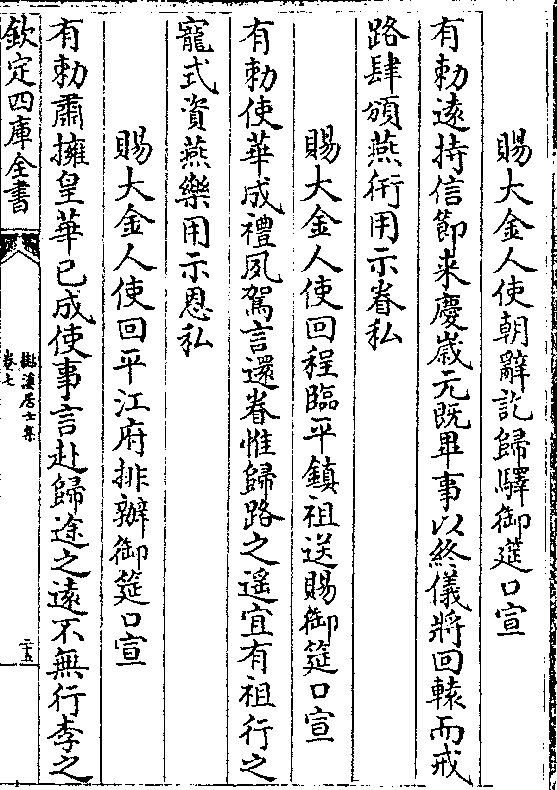 賜大金人使朝辭訖歸驛御筵口宣
有勅遠持信節来慶歳元既畢事以終儀將回轅而戒
路肆頒燕衎用示眷私
賜大金人使回程臨平鎮祖送賜御筵口宣
有勅使華成禮夙駕言還眷惟歸路之遥宜有祖行之
寵式資燕樂用示恩私
賜大金人使回平江府排辦御筵口宣
有勅肅擁皇華已成使事言赴歸途之遠不無行李之
欽定四庫全書
卷七
二十五